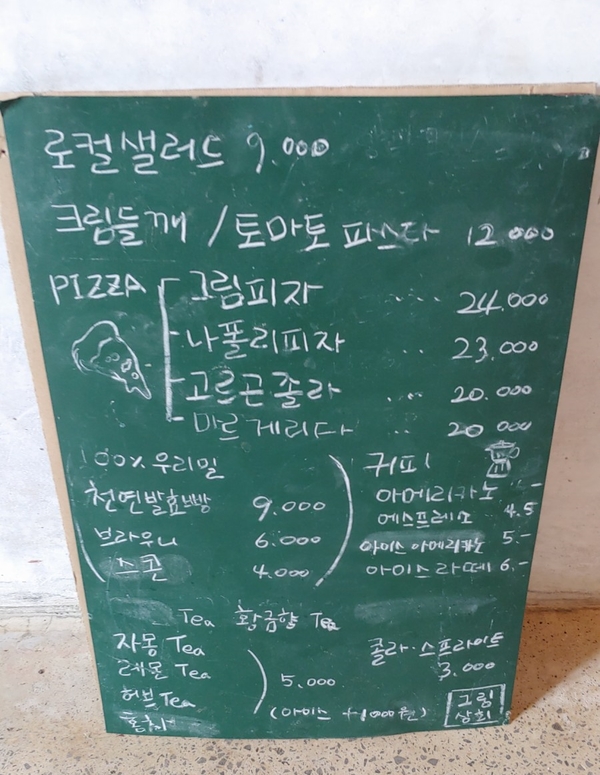 로컬샐러드 9.000
크림들깨 / 토마토 파스타 12.000
PIZZA 그림피자 ..... 24.000
나폴리피자 .. 23.000
고르곤졸라 ... 20.000
마르게리타 .. 20.000
100% 우리밀
천연발효빵 9.000
브라우니 6.000
스콘 4.000
커피
아메리카노 -
에스프레소 4.5
아이스 아메리카노 5.-
아이스라떼 6.-
Tea 황금향 Tea
자몽 Tea
레몬 Tea
허브 Tea
홍차
5.000
(아이스 +1000원)
콜라·스프라이트
3.000
그림
상회